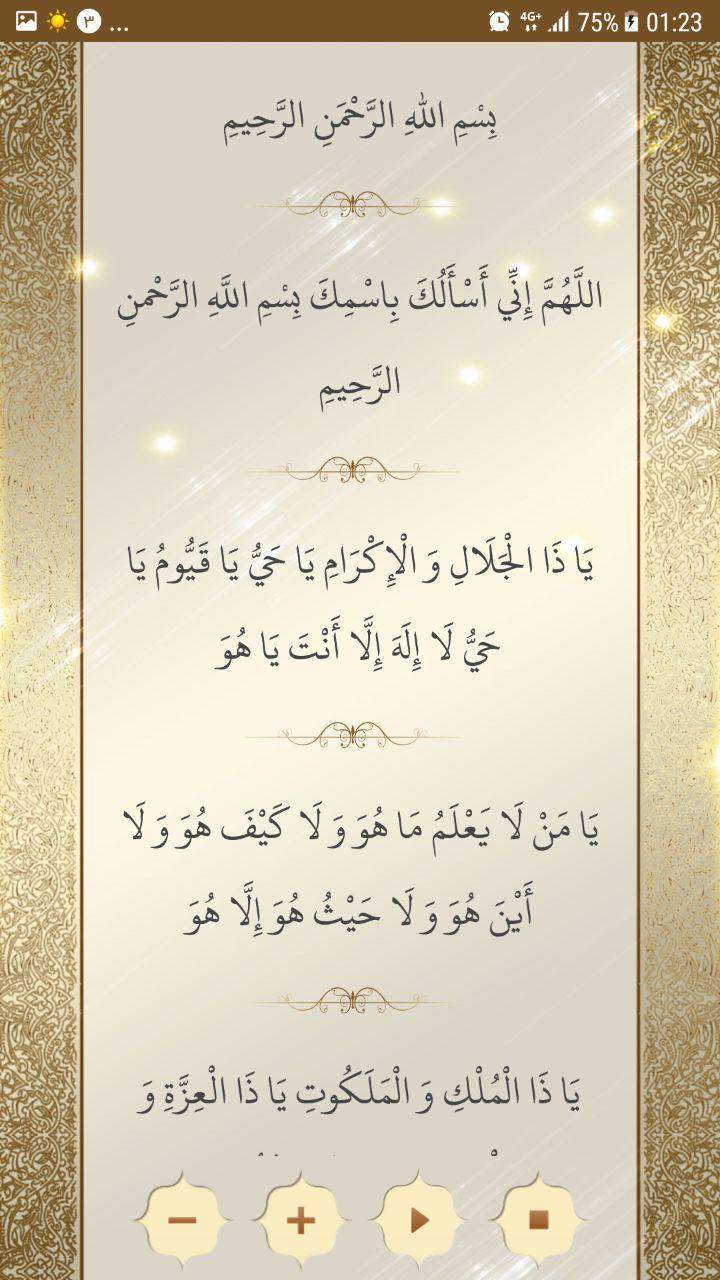 ٣ ... 4G+ 75% 01:23
بِسْمِ اللّٰهِ الرَّحْمَنِ الرَّحِيمِ
اللَّهُمَّ إِنِّي أَسْأَلُكَ بِاسْمِكَ بِسْمِ اللَّهِ الرَّحْمنِ
الرَّحِيمِ
يَا ذَا الْجَلَالِ وَ الْإِكْرَامِ يَا حَيُّ يَا قَيُّومُ يَا
حَيُّ لَا إِلَهَ إِلَّا أَنْتَ يَا هُوَ
يَا مَنْ لَا يَعْلَمُ مَا هُوَ وَ لَا كَيْفَ هُوَ وَ لَا
أَيْنَ هُوَ وَ لَا حَيْثُ هُوَ إِلَّا هُوَ
يَا ذَا الْمُلْكِ وَ الْمَلَكُوتِ يَا ذَا الْعِزَّةِ وَ